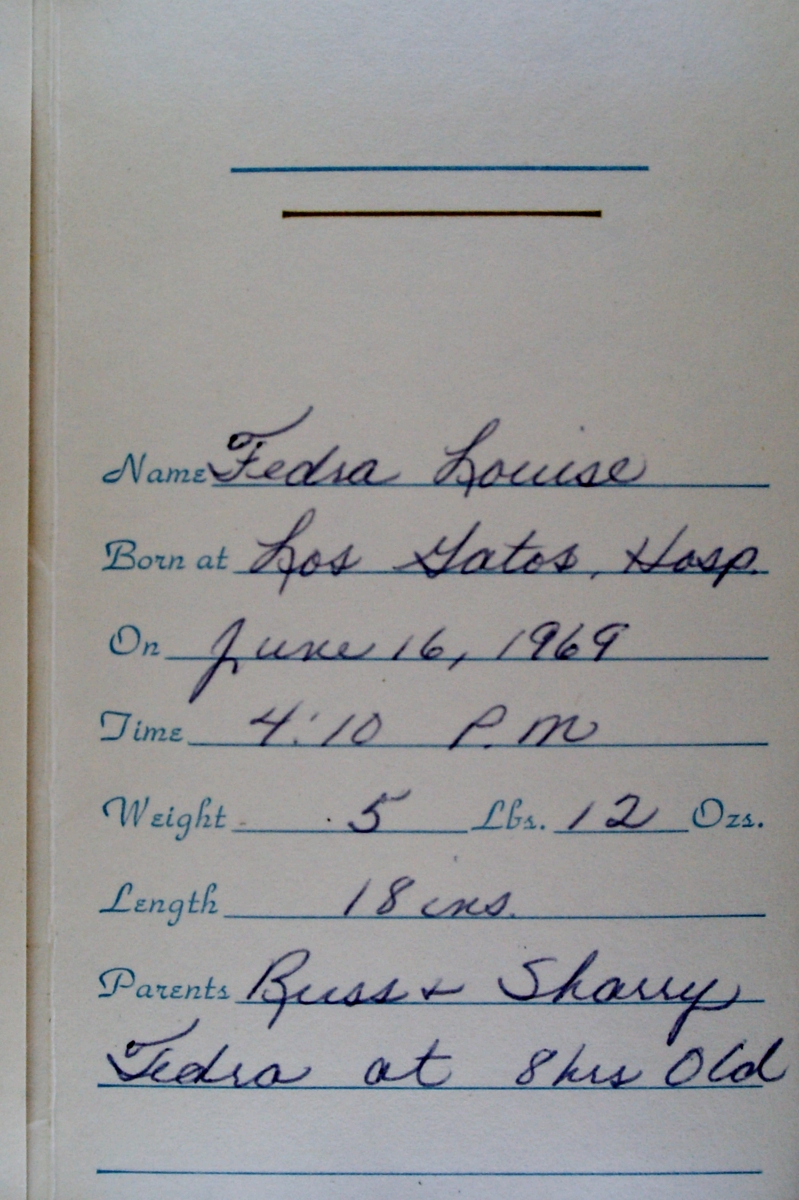 Name Fedra Louise
Born at Los Gatos, Hosp.
On June 16, 1969
Time 4:10 P.M
Weight 5 Lbs. 12 Ozs.
Length 18 ins.
Parents Russ + Sharry
Fedra at 8 hrs Old